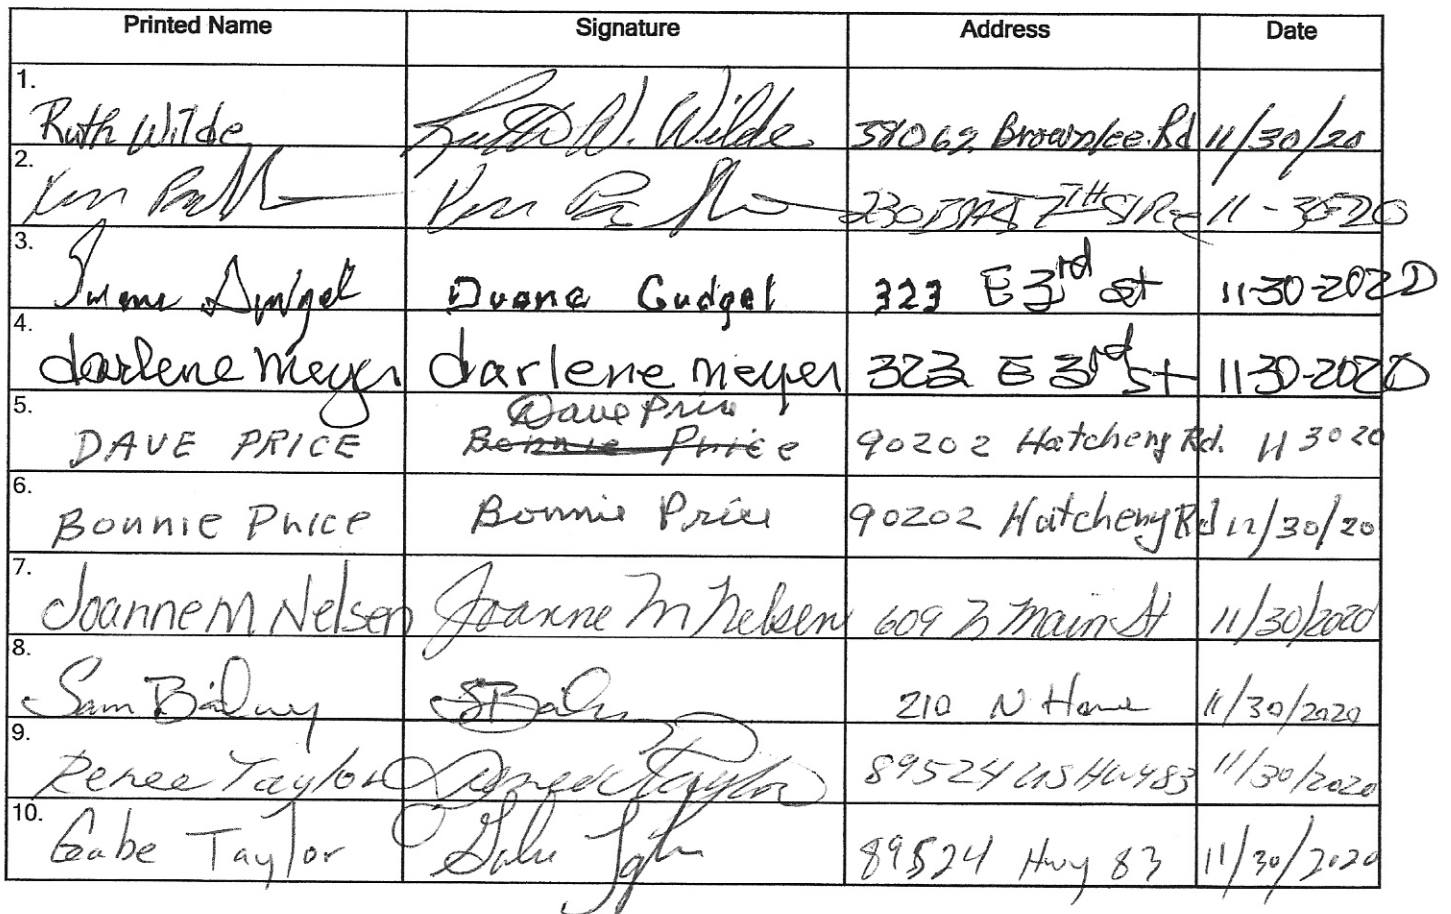 Printed Name Signature Address Date
1. Ruth Wilde Ruth W. Wilde 38062 Brownlee Rd 11/30/20
2. 230 EAST 7TH 11-30-20
3. Duane Gudgel 323 E 3rd st 11-30-2020
4. darlene meyer darlene meyer 323 E 3rd st 11-30-2020
5. DAVE PRICE Dave Price Bonnie Price 90202 Hatcheng Rd. 11 30 20
6. Bonnie Price Bonnie Price 90202 Hatcheng Rd 12/30/20
7. Joanne M Nelsen Joanne M Nelsen 609 N Main St 11/30/2020
8. Sam 210 N 11/30/2020
9. Renee Taylor Renee Taylor 89524 US Hwy 83 11/30/2020
10. Gabe Taylor Gabe 89524 Hwy 83 11/30/2020